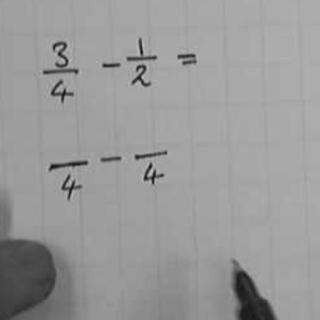 3/4 - 1/2 =
/4 - /4